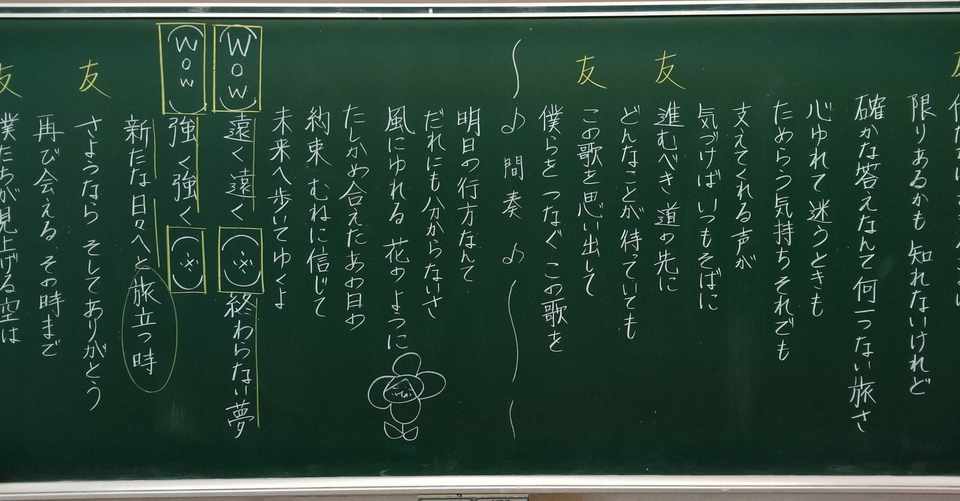 限りあるかも 知れないけれど
確かな答えなんて 何一つない旅さ
心ゆれて 迷うときも
ためらう気持ち それでも
支えてくれる声が
気づけば いつもそばに
友 進むべき 道の先に
どんなことが 待っていても
友 この歌を 思い出して
僕らを つなぐ この歌を
♪ 間奏 ♪
明日の行方なんて
だれにも分からないさ
風にゆれる 花のように
たしかめ合えた あの日の
約束 むねに信じて
未来へ歩いてゆくよ
(WOW) 遠く遠く (い火) 終わらない夢
(WOW) 強く強く (い火)
新たな 日々へと 旅立つ時
友 さようなら そしてありがとう
再び会える その時まで
友 僕たちが見上げる空は